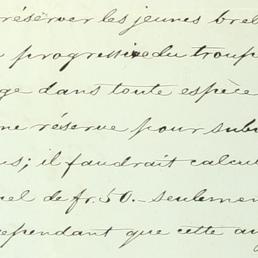 réserver les jeunes breb
progressive du troup
ge dans toute espèce
ne réserve pour subv
us; il faudrait calcul
el de fr. 50.- seulemen
ependant que cette au